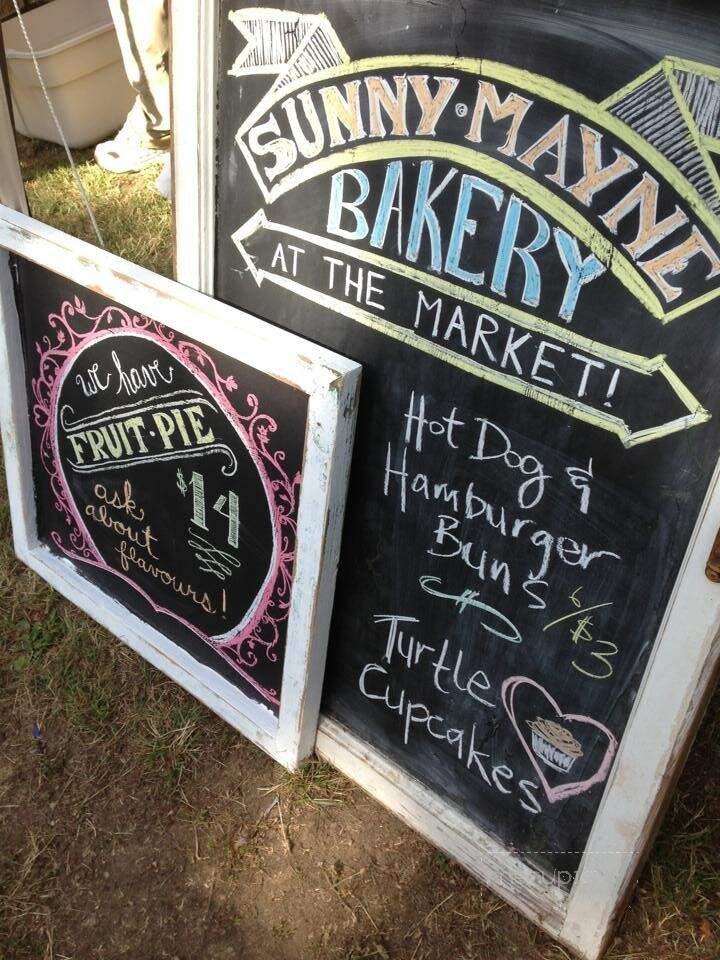 SUNNY·MAYNE
BAKERY
AT THE MARKET!
Hot Dog &
Hamburger
Buns
6/$3
Turtle
Cupcakes
we have
FRUIT·PIE
$14
ask
about
flavours!